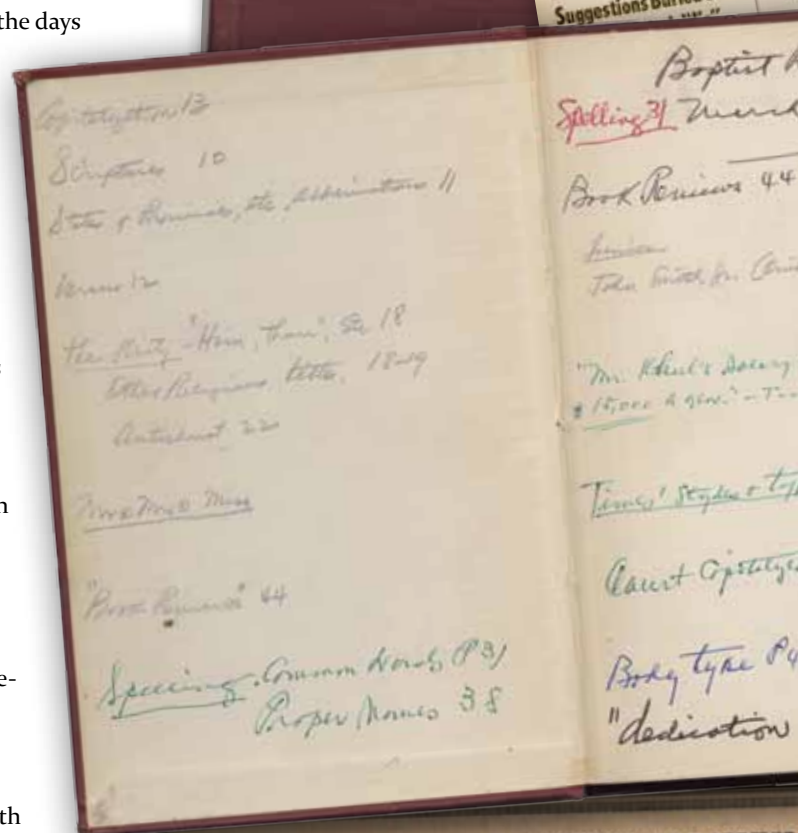 the days
Suggestions Buried
Capitalization 13
Scriptures 10
States & Provinces, etc, Abbreviations 11
Verses 12
the Deity "Him, Thou", etc 18
Other Religious titles, 18-19
Antichrist 22
Mr & Mrs & Miss
"Book Reviews" 44
Spelling. Common Words P31
Proper Names 38
Baptist
Spelling 31
Book Reviews 44
John Smith, Jr.
"Mr. Salary
$15,000 a year." - T
Times' Styles &
Court
Body type P4
"dedication
n
e-
th